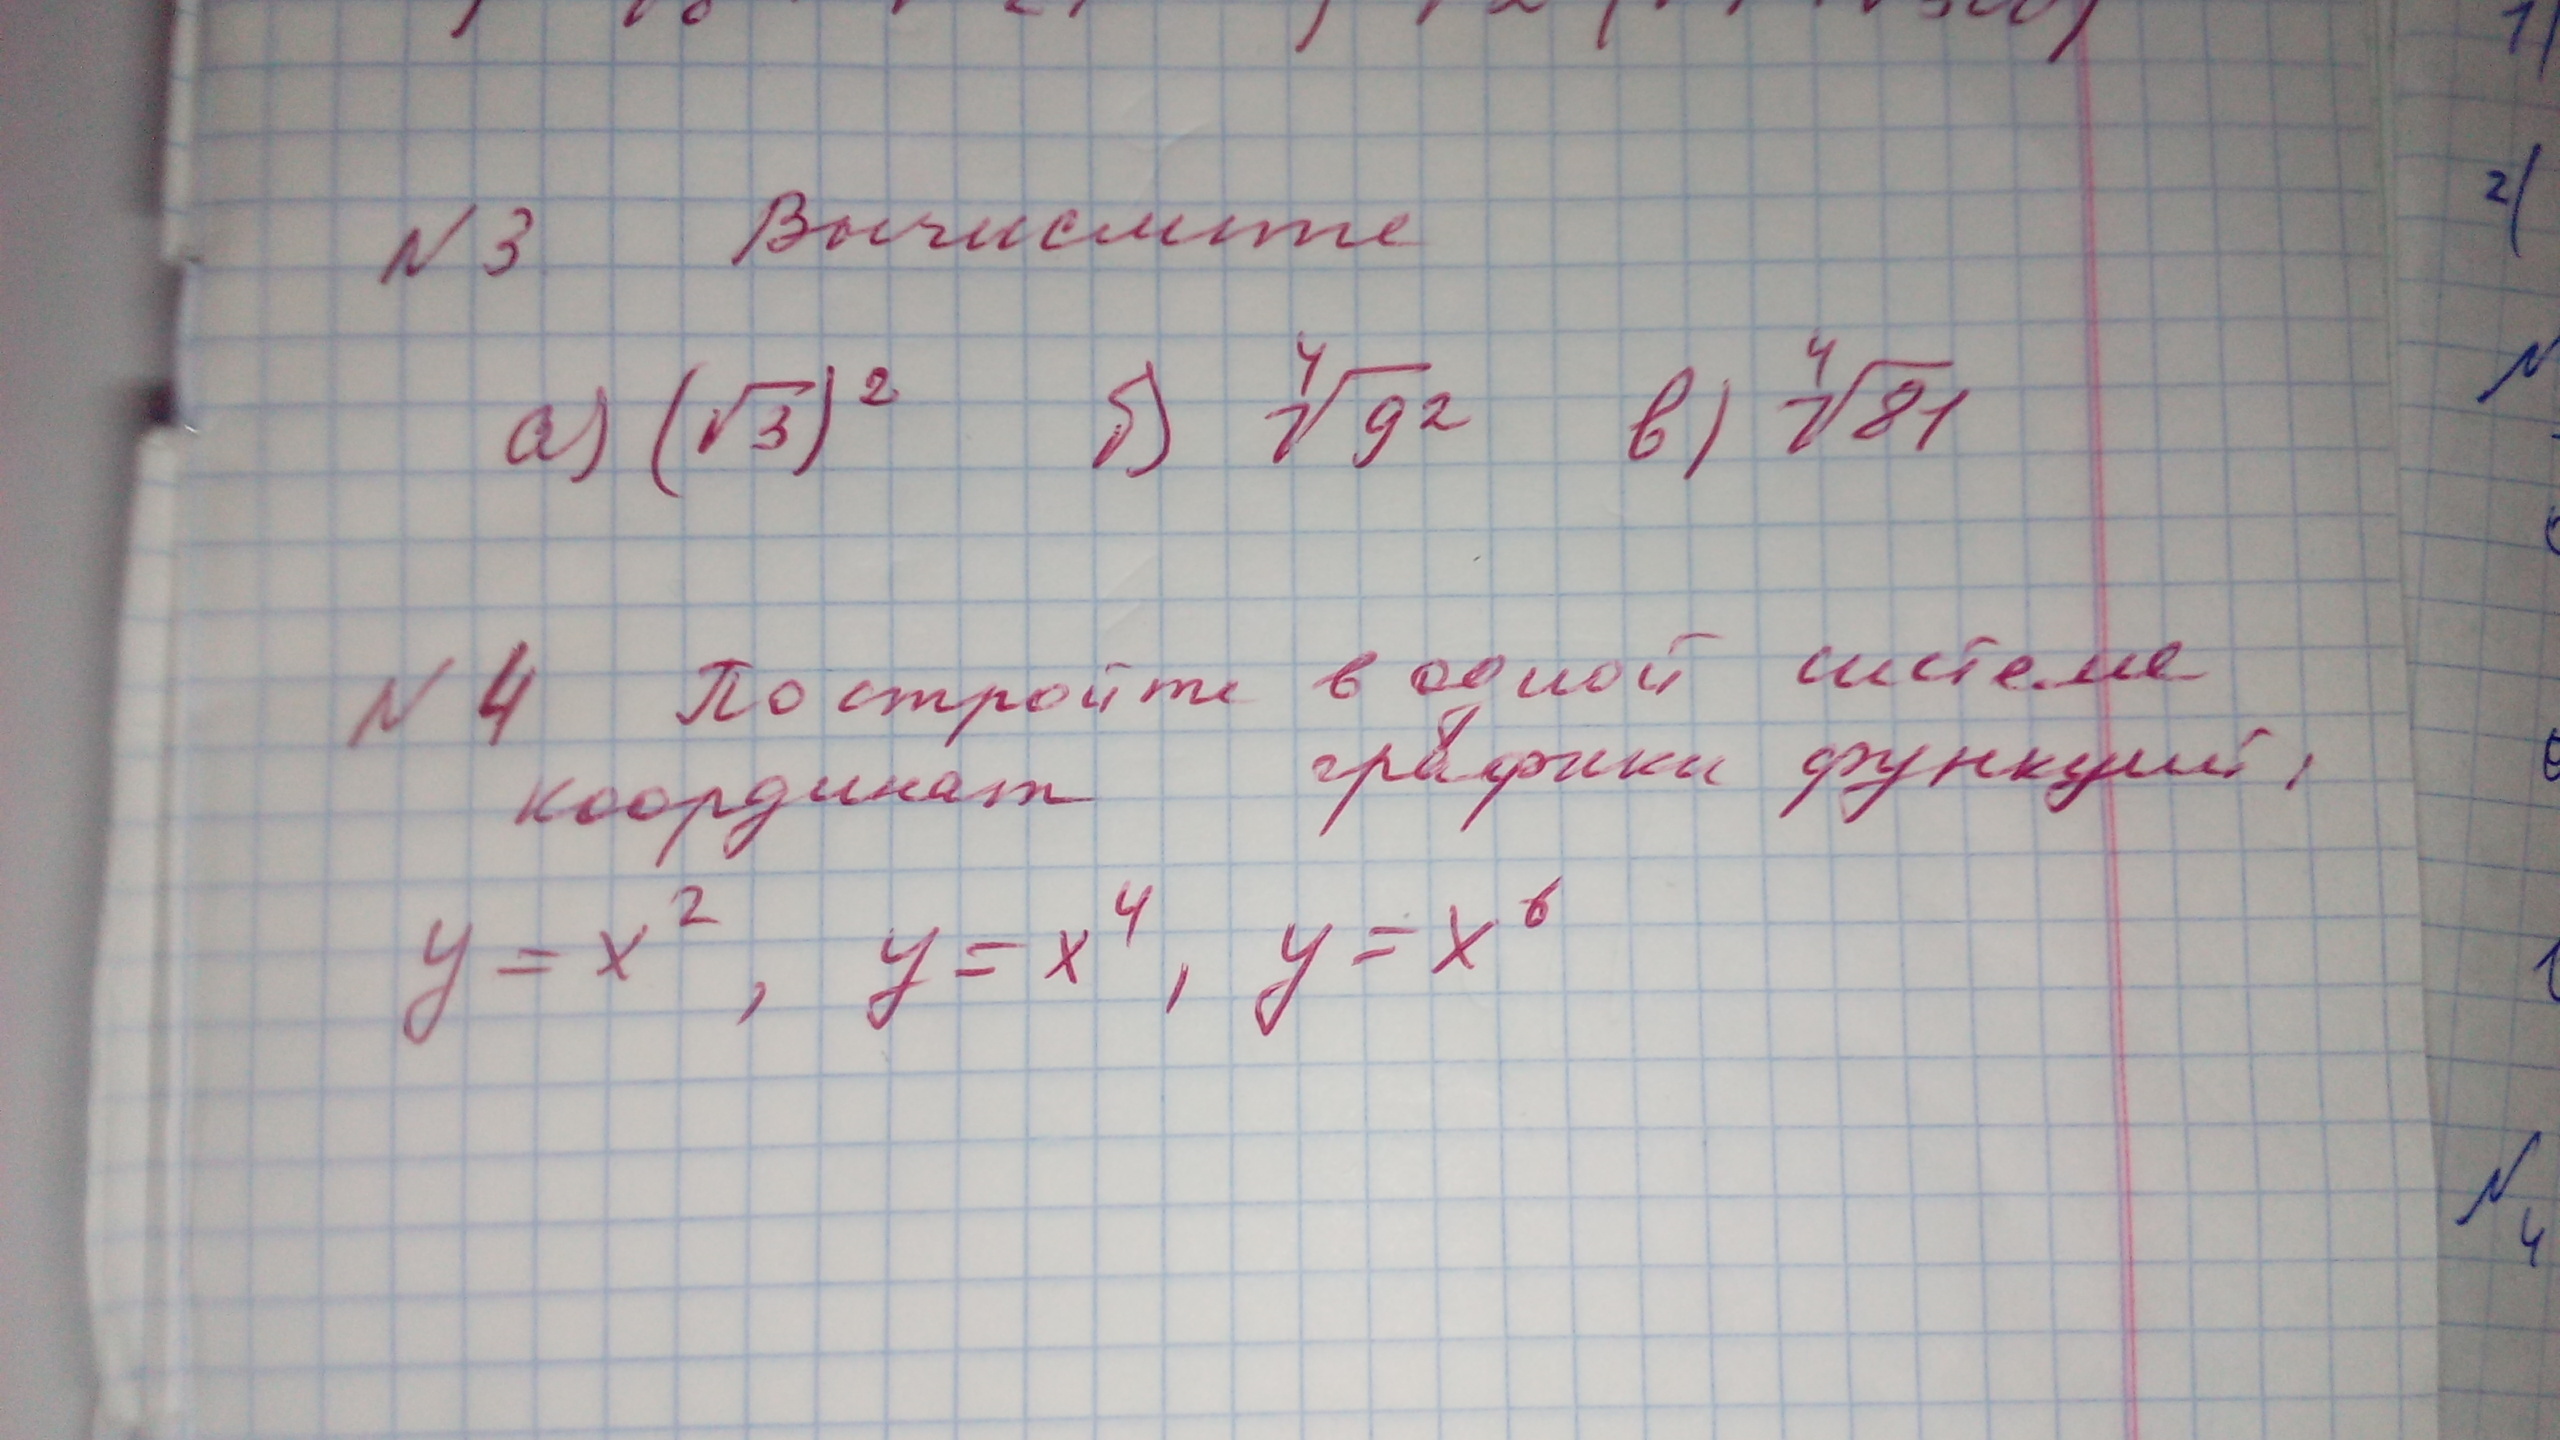 N3 Вычислите
а) (√3)² б) ⁴√9² в) ⁴√81
N4 Постройте в одной системе
координат графики функций,
y = x², y = x⁴, y = x⁶
1)
2)
N
N
4